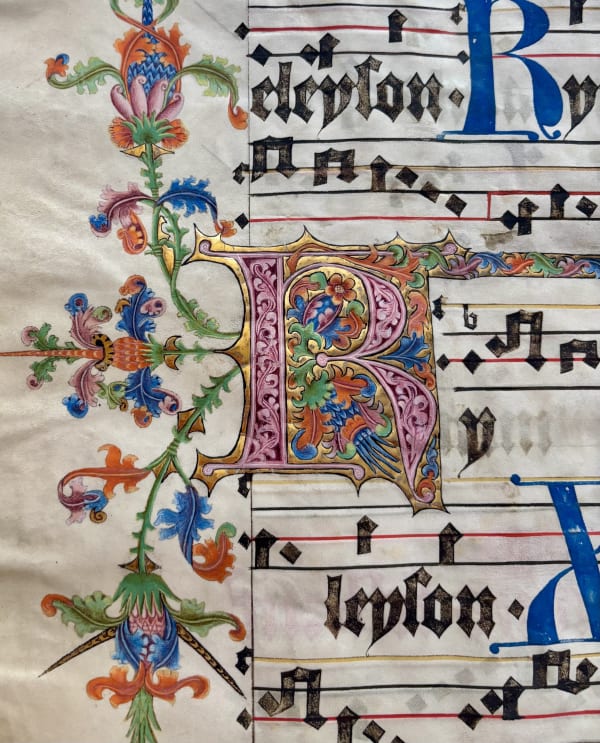 eleyſon · Ky
Ky
leyſon · X